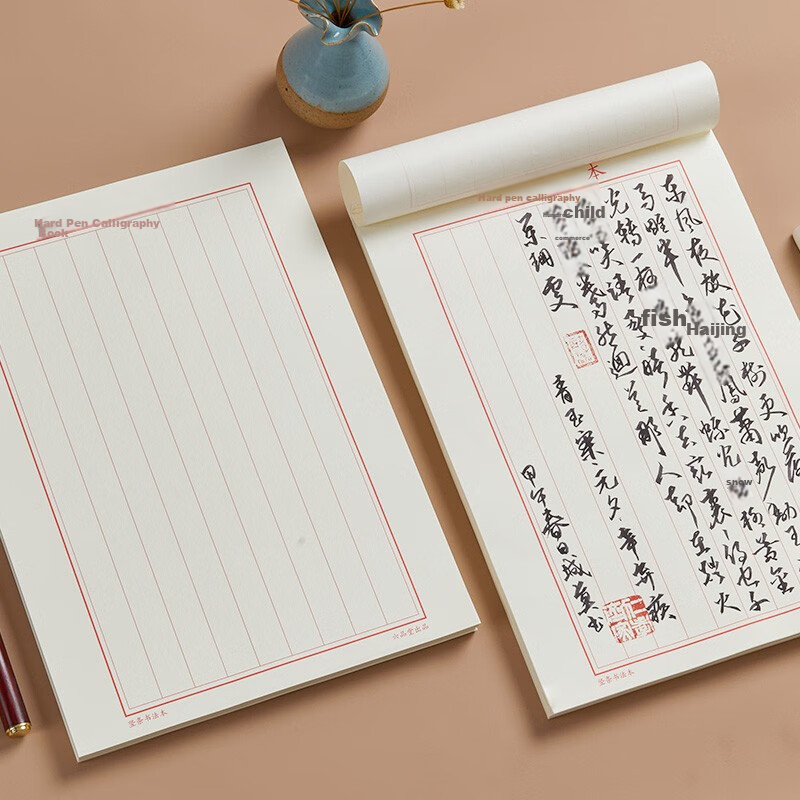 Hard Pen Calligraphy
Book
六品堂出品
竖条书法本
本
Hard pen calligraphy
child
commerce
fish
Haijing
snow
东风夜放花千树更吹落
马雕车凤箫声动玉
光转一夜龙舞蛾儿柳黄金
笑语盈盈暗香去众里
蓦然回那人却在灯火
珊处
青玉案元夕辛弃疾
甲午春日城书
竖条书法本